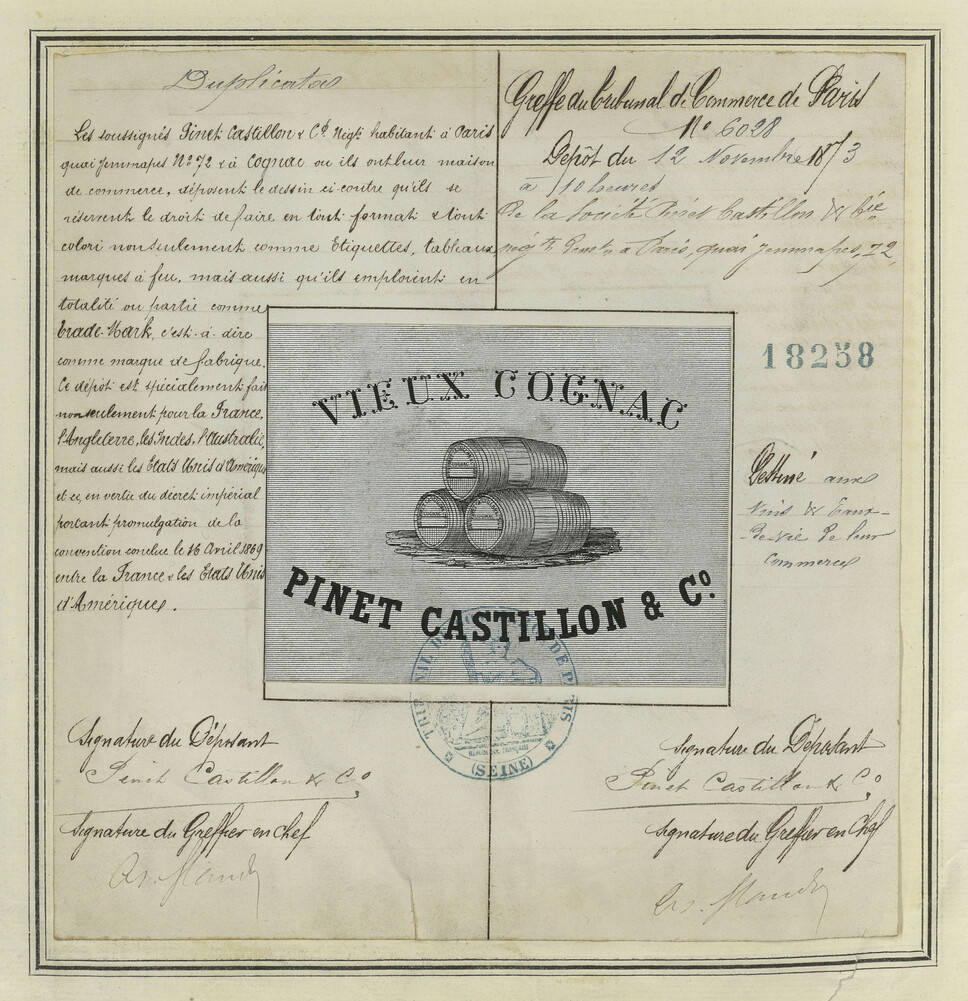 Duplicata
Les soussignés Pinet Castillon & Cº. Négts habitant à Paris
quai Jemmapes Nº 72 & à Cognac ou ils ont leur maison
de commerce, déposent le dessin ci-contre qu'ils se
réservent le droit de faire en tout format & tout
colori non seulement comme Etiquettes, tableaux,
marques à feu, mais aussi qu'ils emploient en
totalité ou partie comme
Trade-Mark, c'est-à-dire
comme marque de fabrique.
Ce dépôt est spécialement fait
non seulement pour la France,
l'Angleterre, les Indes, l'Australie,
mais aussi les Etats Unis d'Amérique
et ce, en vertu du décret impérial
portant promulgation de la
convention conclue le 16 Avril 1869
entre la France & les Etats Unis
d'Amériques.
Greffe du Tribunal de Commerce de Paris
Nº 6028
Dépôt du 12 Novembre 1873
à 10 heures
De la Société Pinet Castillon & Cie
négts à Paris, quai Jemmapes, 72
18258
Destiné aux
Vins & Eaux-
de-vie de leur
commerce
VIEUX COGNAC
COGNAC
PINET CASTILLON & Cº.
TRIBUNAL DE PARIS
RÉPUBLIQUE FRANÇAISE
(SEINE)
Signature du Déposant
Pinet Castillon & Cº
Signature du Greffier en chef
Signature du Déposant
Pinet Castillon & Cº
Signature du Greffier en Chef